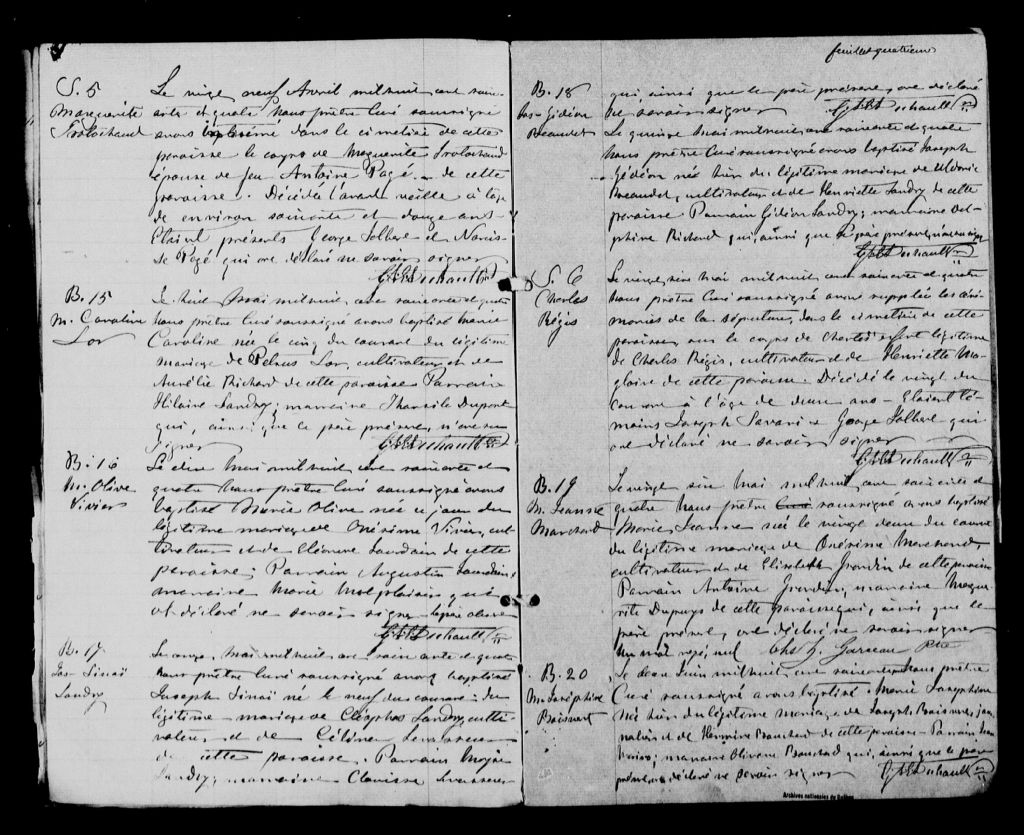 S. 5
Marguerite
Le vingt neuf Avril mil huit cent soix-
ante et quatre Nous prêtre Curé soussigné
avons inhumé dans le cimetière de cette
paroisse le corps de Marguerite
épouse de feu Antoine Pagé de cette
paroisse. Décédée l'avant veille à l'age
de environ soixante et douze ans
Etaient présents George Jolbert et Narcis-
se Pagé qui ont déclaré ne savoir signer
B. 15
M. Caroline
Lor
Le huit Mai mil huit cent soixante et quatre
Nous prêtre Curé soussigné avons baptisé Marie
Caroline née le cinq du courant du légitime
mariage de Petrus Lor, cultivateur, et de
Aurélie Richard de cette paroisse Parrain
Hilaire Landry; marraine Tharsile Dupont
qui, ainsi que le père présent, n'ont su
signer
B. 16
M. Olive
Vivier
Le dix Mai mil huit cent soixante et
quatre Nous prêtre Curé soussigné avons
baptisé Marie Olive née ce jour du
légitime mariage de Onésime Vivier, cul-
tivateur et de Eléonore de cette
paroisse; Parrain Augustin
marraine Marie qui
ont déclaré ne savoir signer le père absent
B. 17
Jos. Sinaï
Landry
Le onze Mai mil huit cent soixante et quatre
Nous prêtre Curé soussigné avons baptisé
Joseph Sinaï né le neuf du courant du
légitime mariage de Cléophas Landry culti-
vateur et de Céline Levasseur
de cette paroisse. Parrain Moyse
Landry; marraine Clarisse Levasseur
feuillet quatrième
B. 18
Jos- Gédéon
Beaudet
qui, ainsi que le père présent, ont déclaré
ne savoir signer
Le quinze Mai mil huit cent soixante et quatre
Nous prêtre Curé soussigné avons baptisé Joseph
Gédéon né hier du légitime mariage de Uldoric
Beaudet, cultivateur et de Henriette Landry de cette
paroisse Parrain Gédéon Landry; marraine Del-
phine Richard qui, ainsi que le père présent,
S. 6
Charles
Régis
Le vingt six Mai mil huit cent soixante et quatre
Nous prêtre Curé soussigné avons supplée les céré-
monies de la sépulture, dans le cimetière de cette
paroisse, sur le corps de Charles enfant légitime
de Charles Régis, cultivateur et de Henriette Ma-
gloire de cette paroisse. Décédé le vingt du
courant à l'âge de deux ans - Etaient té-
moins Joseph Savari et George Jolbert qui
ont déclaré ne savoir signer
B. 19
M. Jeanne
Marchand
Le vingt six Mai mil huit cent soixante et
quatre Nous prêtre Curé soussigné avons baptisé
Marie Jeanne née le vingt deux du courant
du légitime mariage de Onésime Marchand,
cultivateur et de Elisabeth Grondin de cette paroisse
Parrain Antoine Grondin, marraine Margue-
rite Dupuys de cette paroisse qui, ainsi que le
père présent, ont déclaré ne savoir signer
Un mot rayé nul Chs Z. Garceau Ptre
B. 20
M. Joséphine
Boisvert
Le deux Juin mil huit cent soixante Nous prêtre
Curé soussigné avons baptisé Marie Josephine
née hier du légitime mariage de Joseph Boisvert, jour-
nalier et de Hermine Bouchard de cette paroisse - Parrain Jean
marraine Olivine Bouchard qui, ainsi que le père
présent ont déclaré ne savoir signer
Archives nationales du Québec